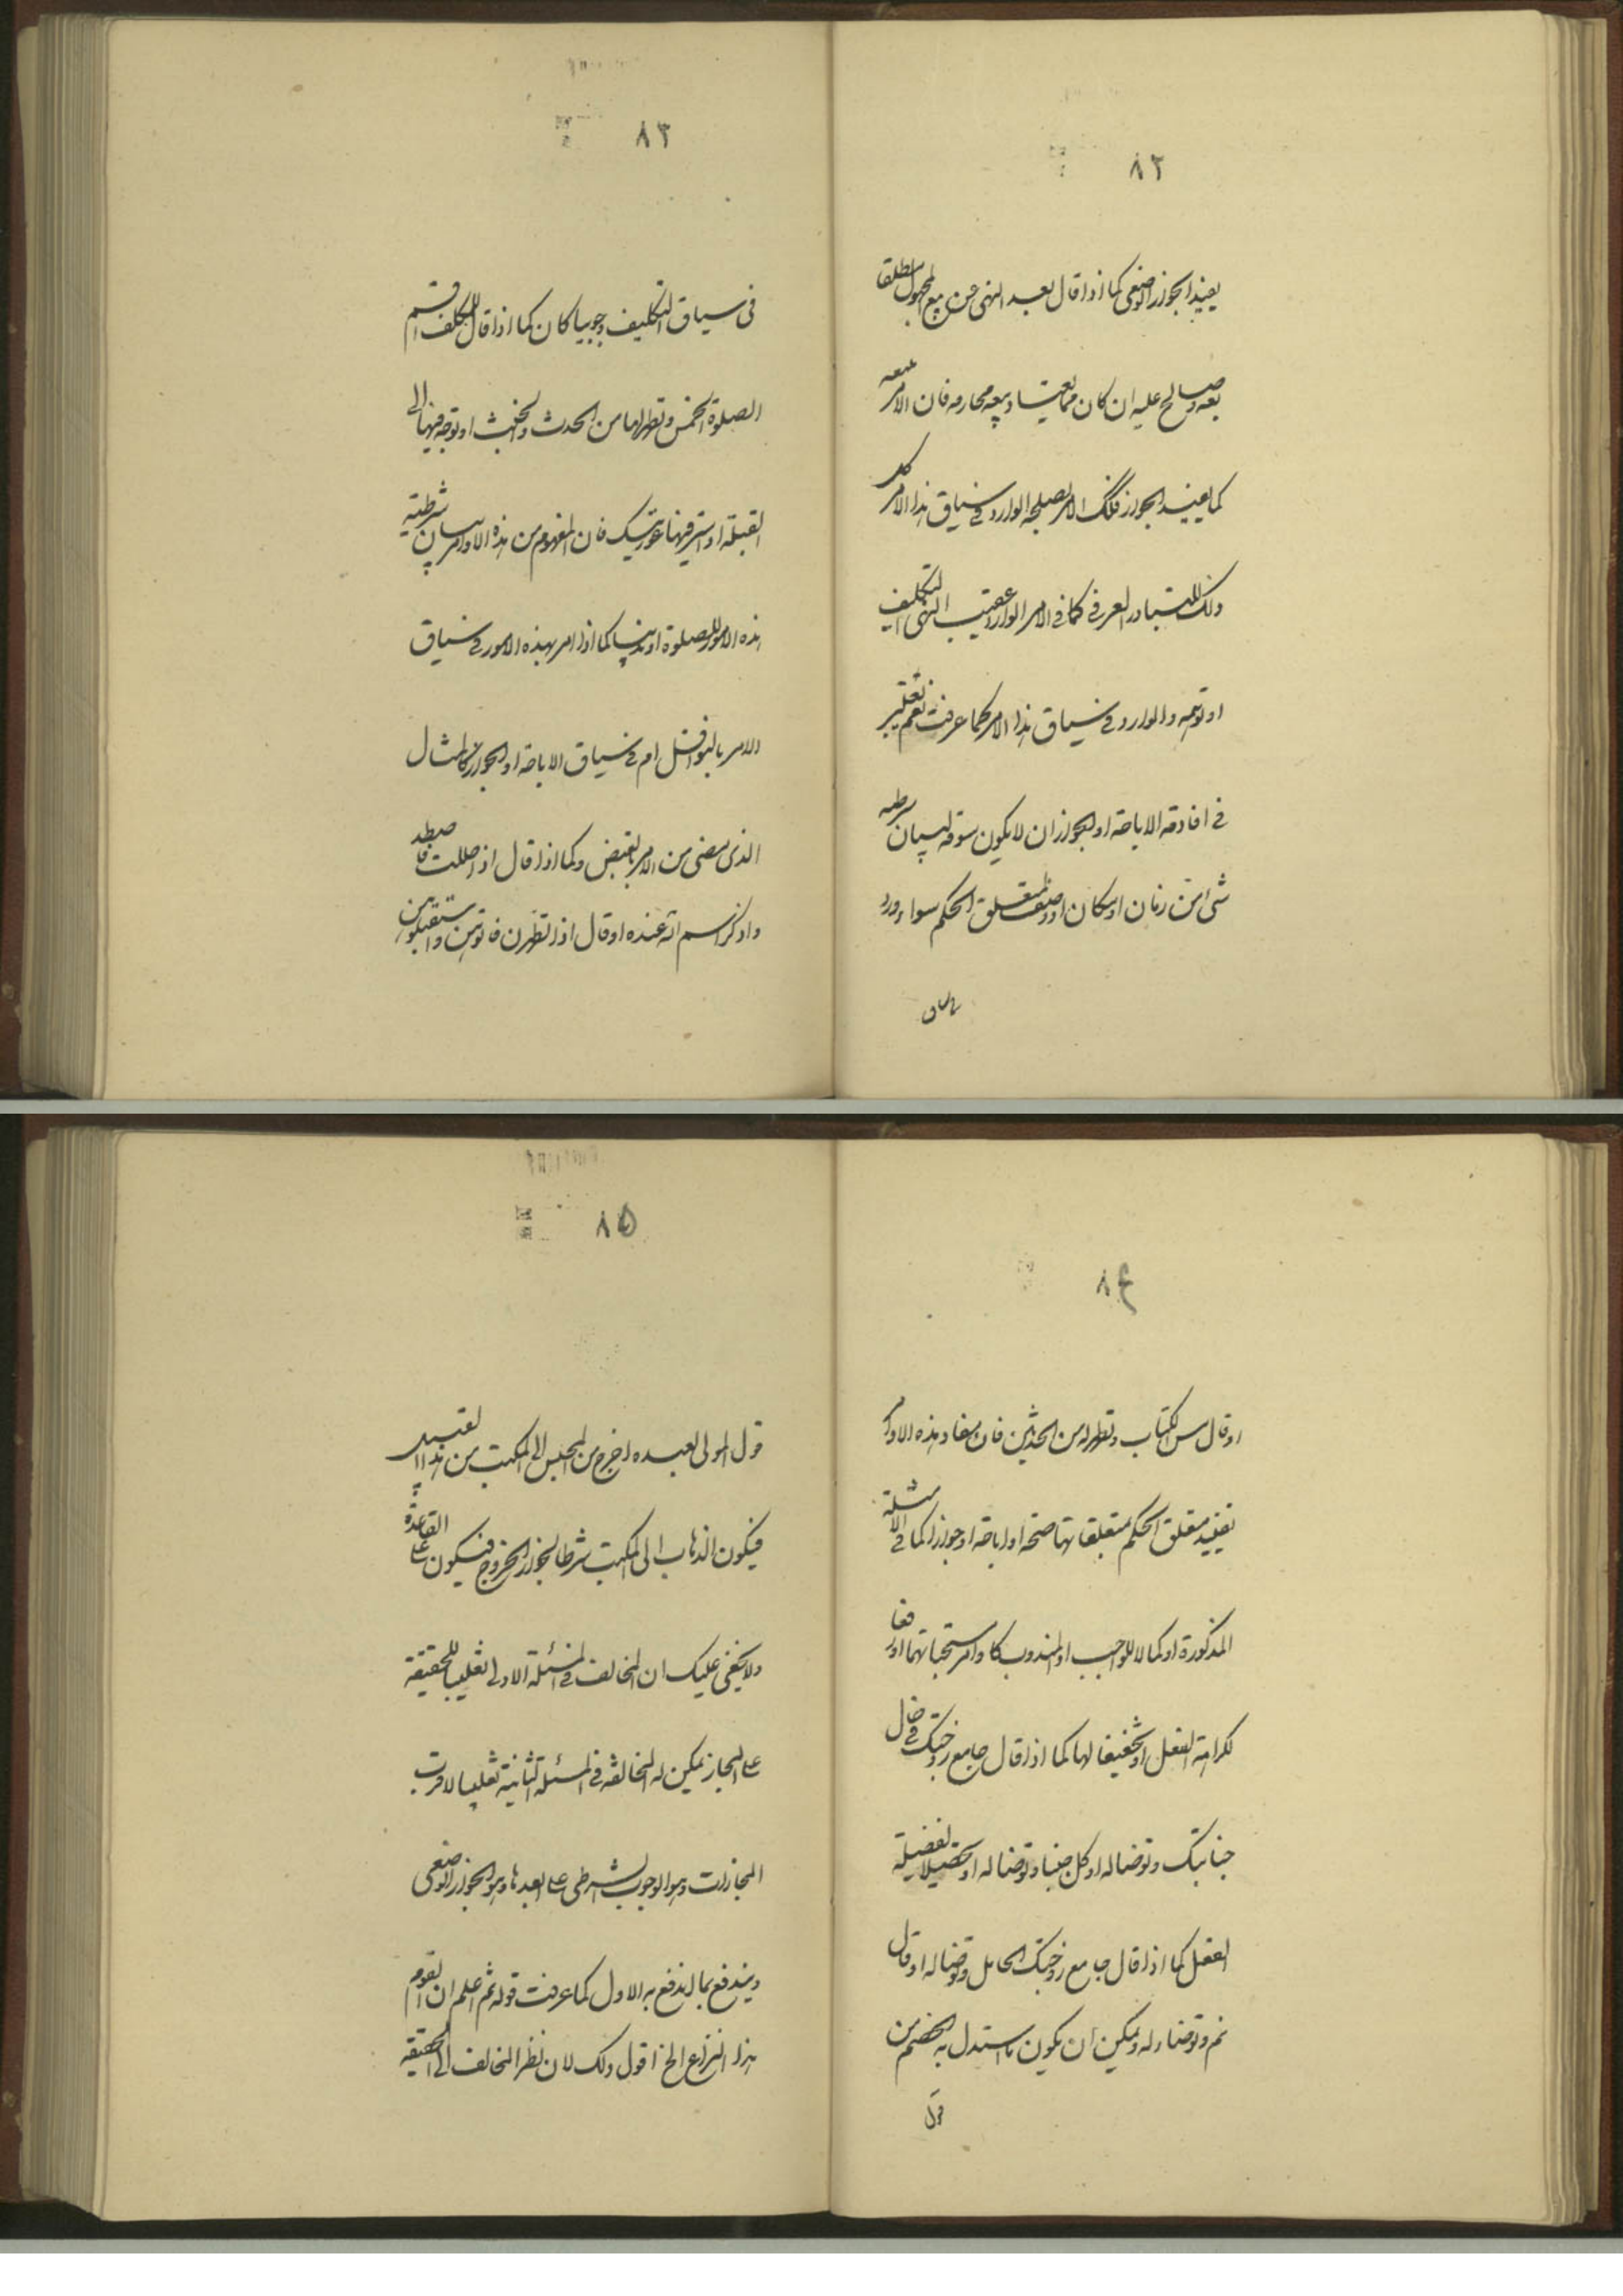 ٨٢
يفيد الجواز الوضعى كما اذا قال بعد النهى عن بيع المجهول مطلقا
بعه وصالح عليه ان كان مما يعتاد بيعه مجازفه فان الامر ببيعه
كما يفيد الجواز فكذلك الامر بصلحه الوارد فى سياق هذا الامر كل
ذلك للتبادر العرفى كما فى الامر الوارد عقيب النهى التكليفى
او توهمه والوارد فى سياق هذا الامر كما عرفت نعم يعتبر
فى افادته الاباحة او الجواز ان لا يكون سوقه لبيان شرطية
شىء من زمان او مكان او وصف لمتعلق الحكم سواء ورد
فى سياق
٨٣
فى سياق التكليف وجوبيا كان كما اذا قال للمكلف اقم
الصلوة الخمس وتطهر لها من الحدث والخبث او توجه فيها الى
القبلة او استر فيها عورتيك فان المفهوم من هذه الاوامر بيان شرطية
هذه الامور للصلوة او ندبيا كما اذا امر بهذه الامور فى سياق
الامر بالنوافل ام فى سياق الاباحة او الجواز كالمثال
الذى مضى من الامر بالقبض وكما اذا قال اذا حللت فاصطد
واذكر اسم الله عنده او قال اذا تطهرن فاتوهن واستقبلوهن
٨۴
او قال مس الكتاب وتطهر له من الحدثين فان مفاد هذه الاوامر
تقييد متعلق الحكم بمتعلقاتها صحة او اباحة او جوازا كما فى الامثلة
المذكورة او كمالا للواجب او المندوب كاوامر مستحباتهما او رفعا
لكراهة الفعل او تخفيفا لها كما اذا قال جامع زوجتك فى حال
جنابتك وتوضأ له او كل جنبا وتوضأ له او تحصيلا لفضيلة
الفعل كما اذا قال جامع زوجتك الحامل وتوضأ له او قال
نم وتوضأ له ويمكن ان يكون ما استدل به الخصم من
قول
٨۵
قول المولى لعبده اخرج من المحبس الى المكتب من هذا القبيل
فيكون الذهاب الى المكتب شرطا لجواز الخروج فيكون على القاعدة
ولا يخفى عليك ان المخالف فى المسئلة الاولى تغليبا للحقيقة
على المجاز يمكن له المخالفة فى المسئلة الثانية تغليبا لاقرب
المجازات وهو الوجوب الشرطى على ابعدها وهو الجواز الوضعى
ويندفع بما اندفع به الاول كما عرفت قوله ثم اعلم ان لقوم
هذا النزاع الخ اقول ذلك لان نظر المخالف الى الحقيقة